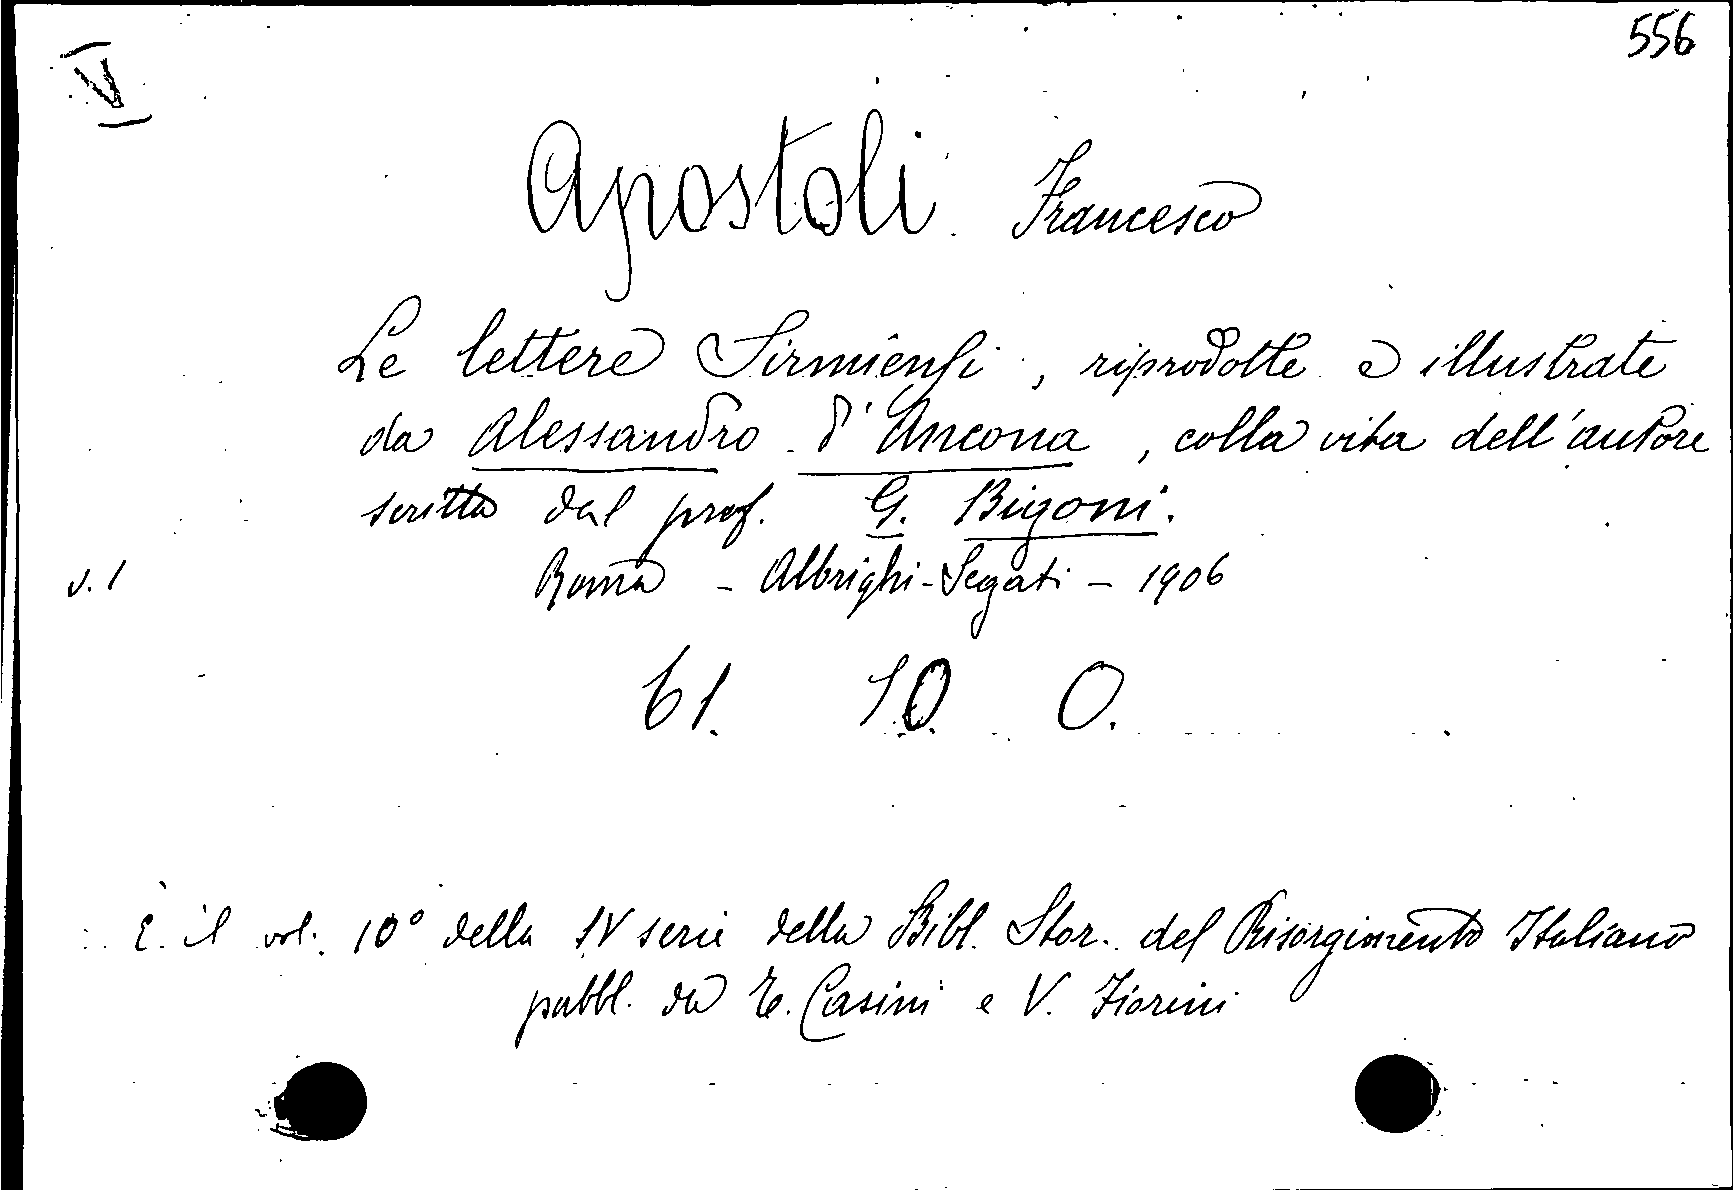 556
V
Apostoli Francesco
Le lettere Sirmiensi, riprodotte e illustrate
da Alessandro d'Ancona, colla vita dell'autore
scritta dal prof. G. Bigoni.
v. 1 Roma - Albrighi-Segati - 1906
61. 10. O.
È il vol. 10° della IV serie della Bibl. Stor. del Risorgimento Italiano
pubbl. da T. Casini e V. Fiorini